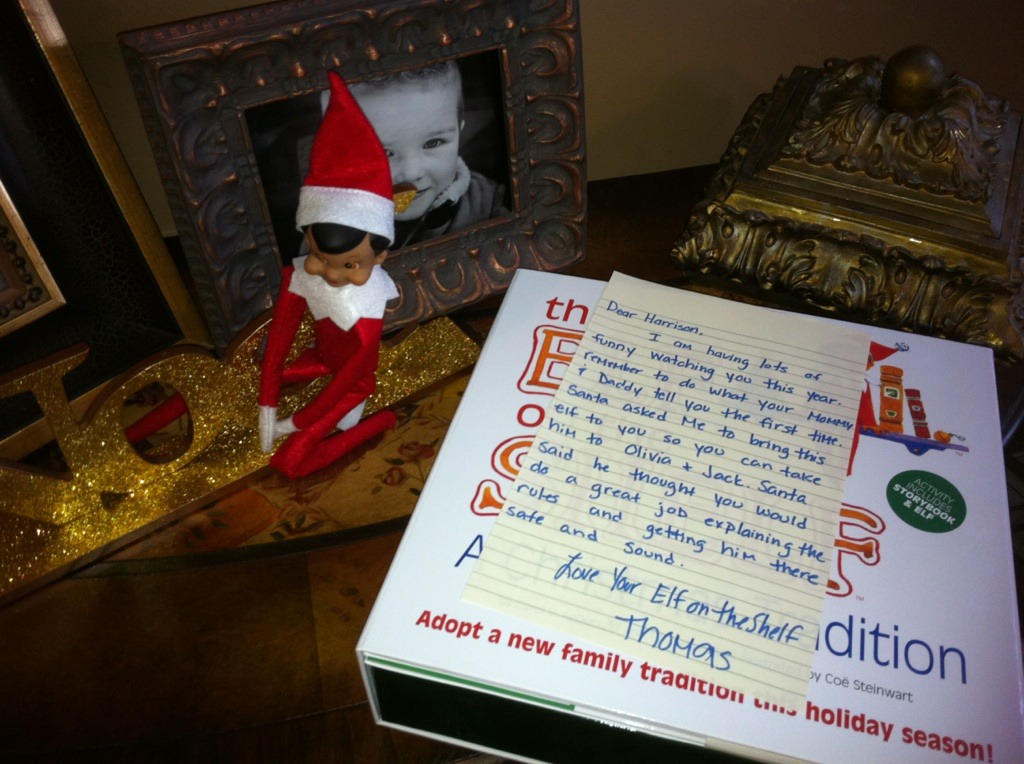 Dear Harrison,
I am having lots of
funny watching you this year.
remember to do what your Mommy
+ Daddy tell you the first time.
Santa asked Me to bring this
elf to you so you can take
him to Olivia + Jack. Santa
said he thought you would
do a great job explaining the
rules and getting him there
safe and sound.
Love Your Elf on the Shelf
Thomas
th
E
o
S
F
A
dition
by Coë Steinwart
Adopt a new family tradition this holiday season!
ACTIVITY
INCLUDES
STORYBOOK
& ELF